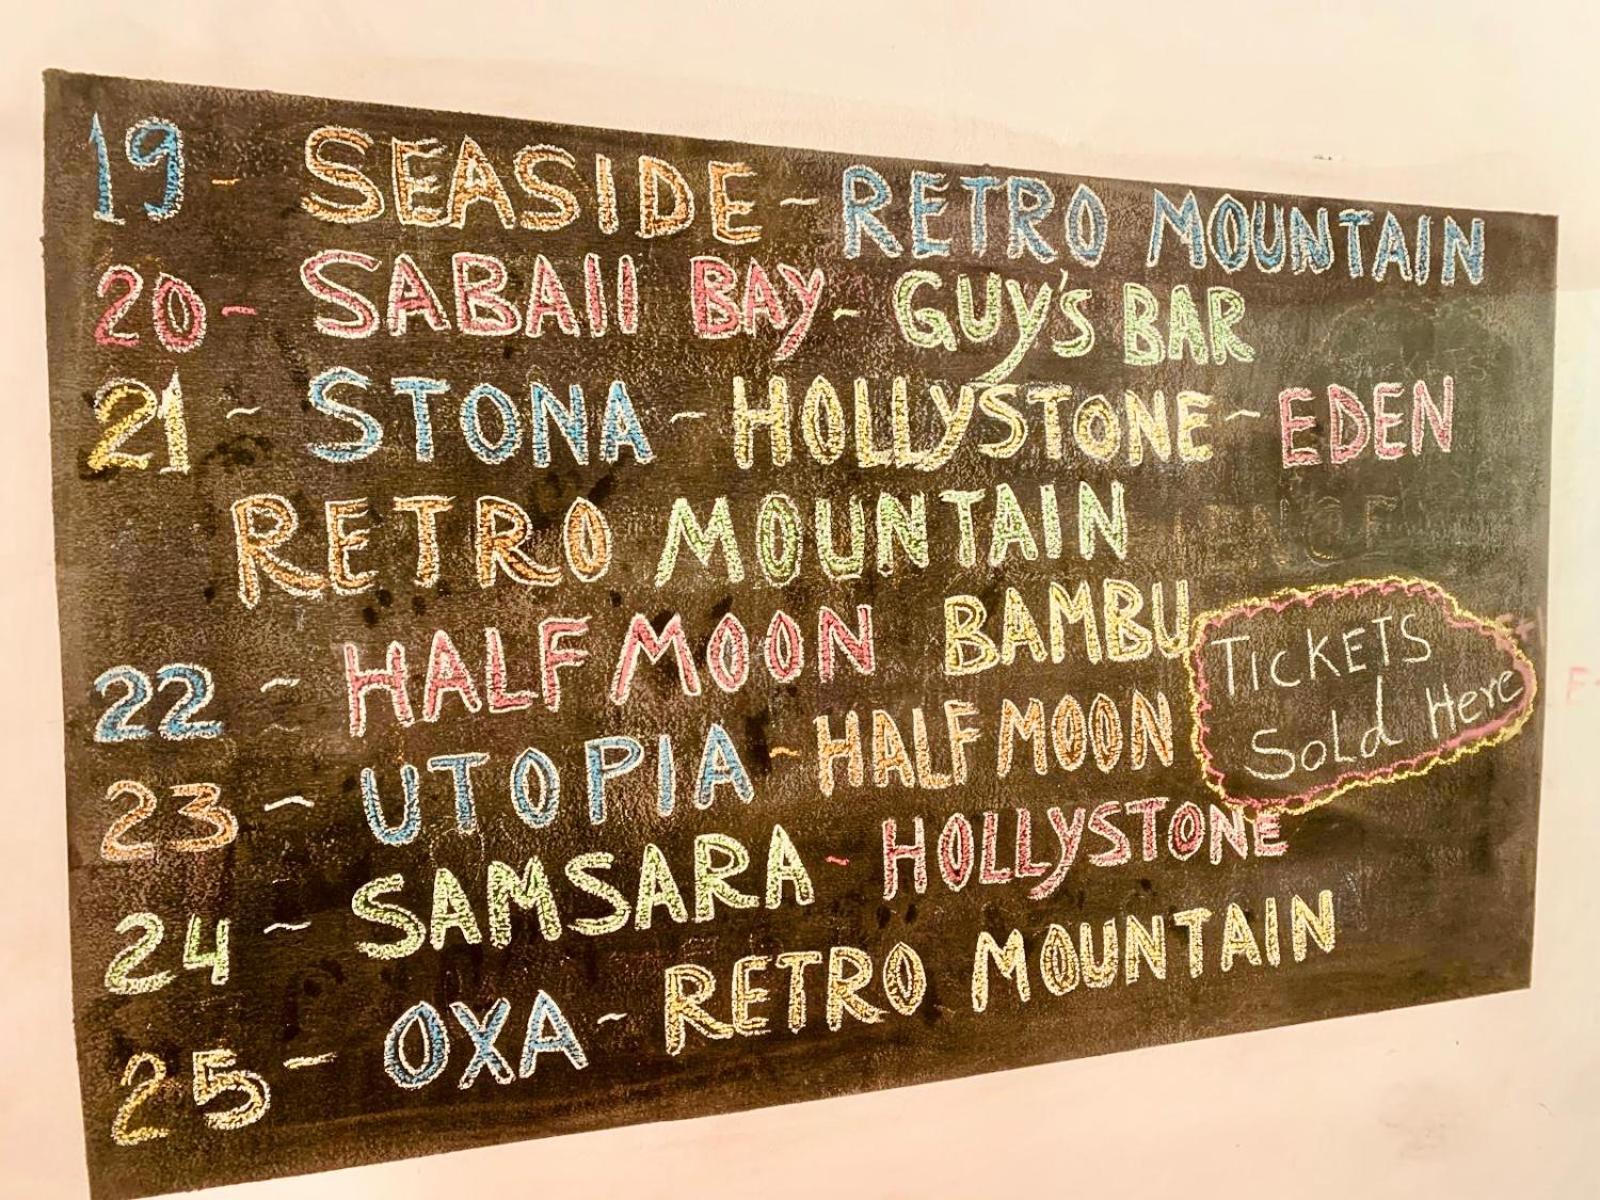 19 - SEASIDE - RETRO MOUNTAIN
20 - SABAII BAY - GUY'S BAR
21 - STONA - HOLLYSTONE - EDEN
RETRO MOUNTAIN
22 - HALFMOON BAMBU
23 - UTOPIA - HALFMOON
24 - SAMSARA - HOLLYSTONE
25 - OXA - RETRO MOUNTAIN
TICKETS
SoLd Here